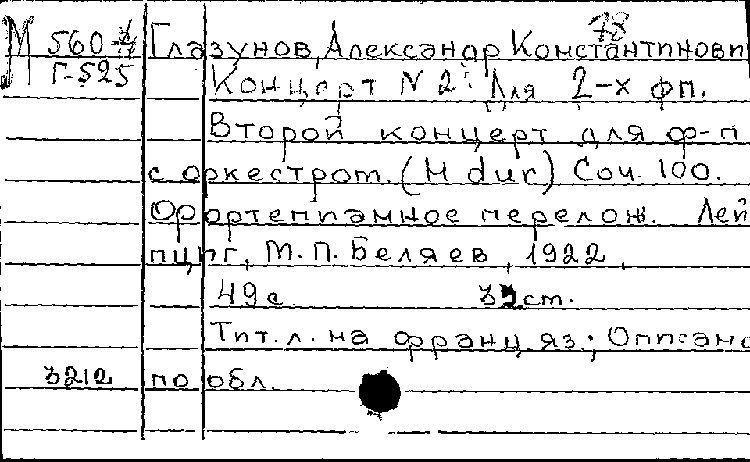 78
М 560-4/77 Глазунов, Александр Константинови
Г-525 Концерт N 2: Для 2-х фп.
Второй концерт для ф-п
с оркестром. (H dur) Соч. 100.
Фортепианное перелож. Лей
пциг, М.П. Беляев, 1922.
49 с см.
Тит. л. на франц яз.; Описано
3212 по обл.